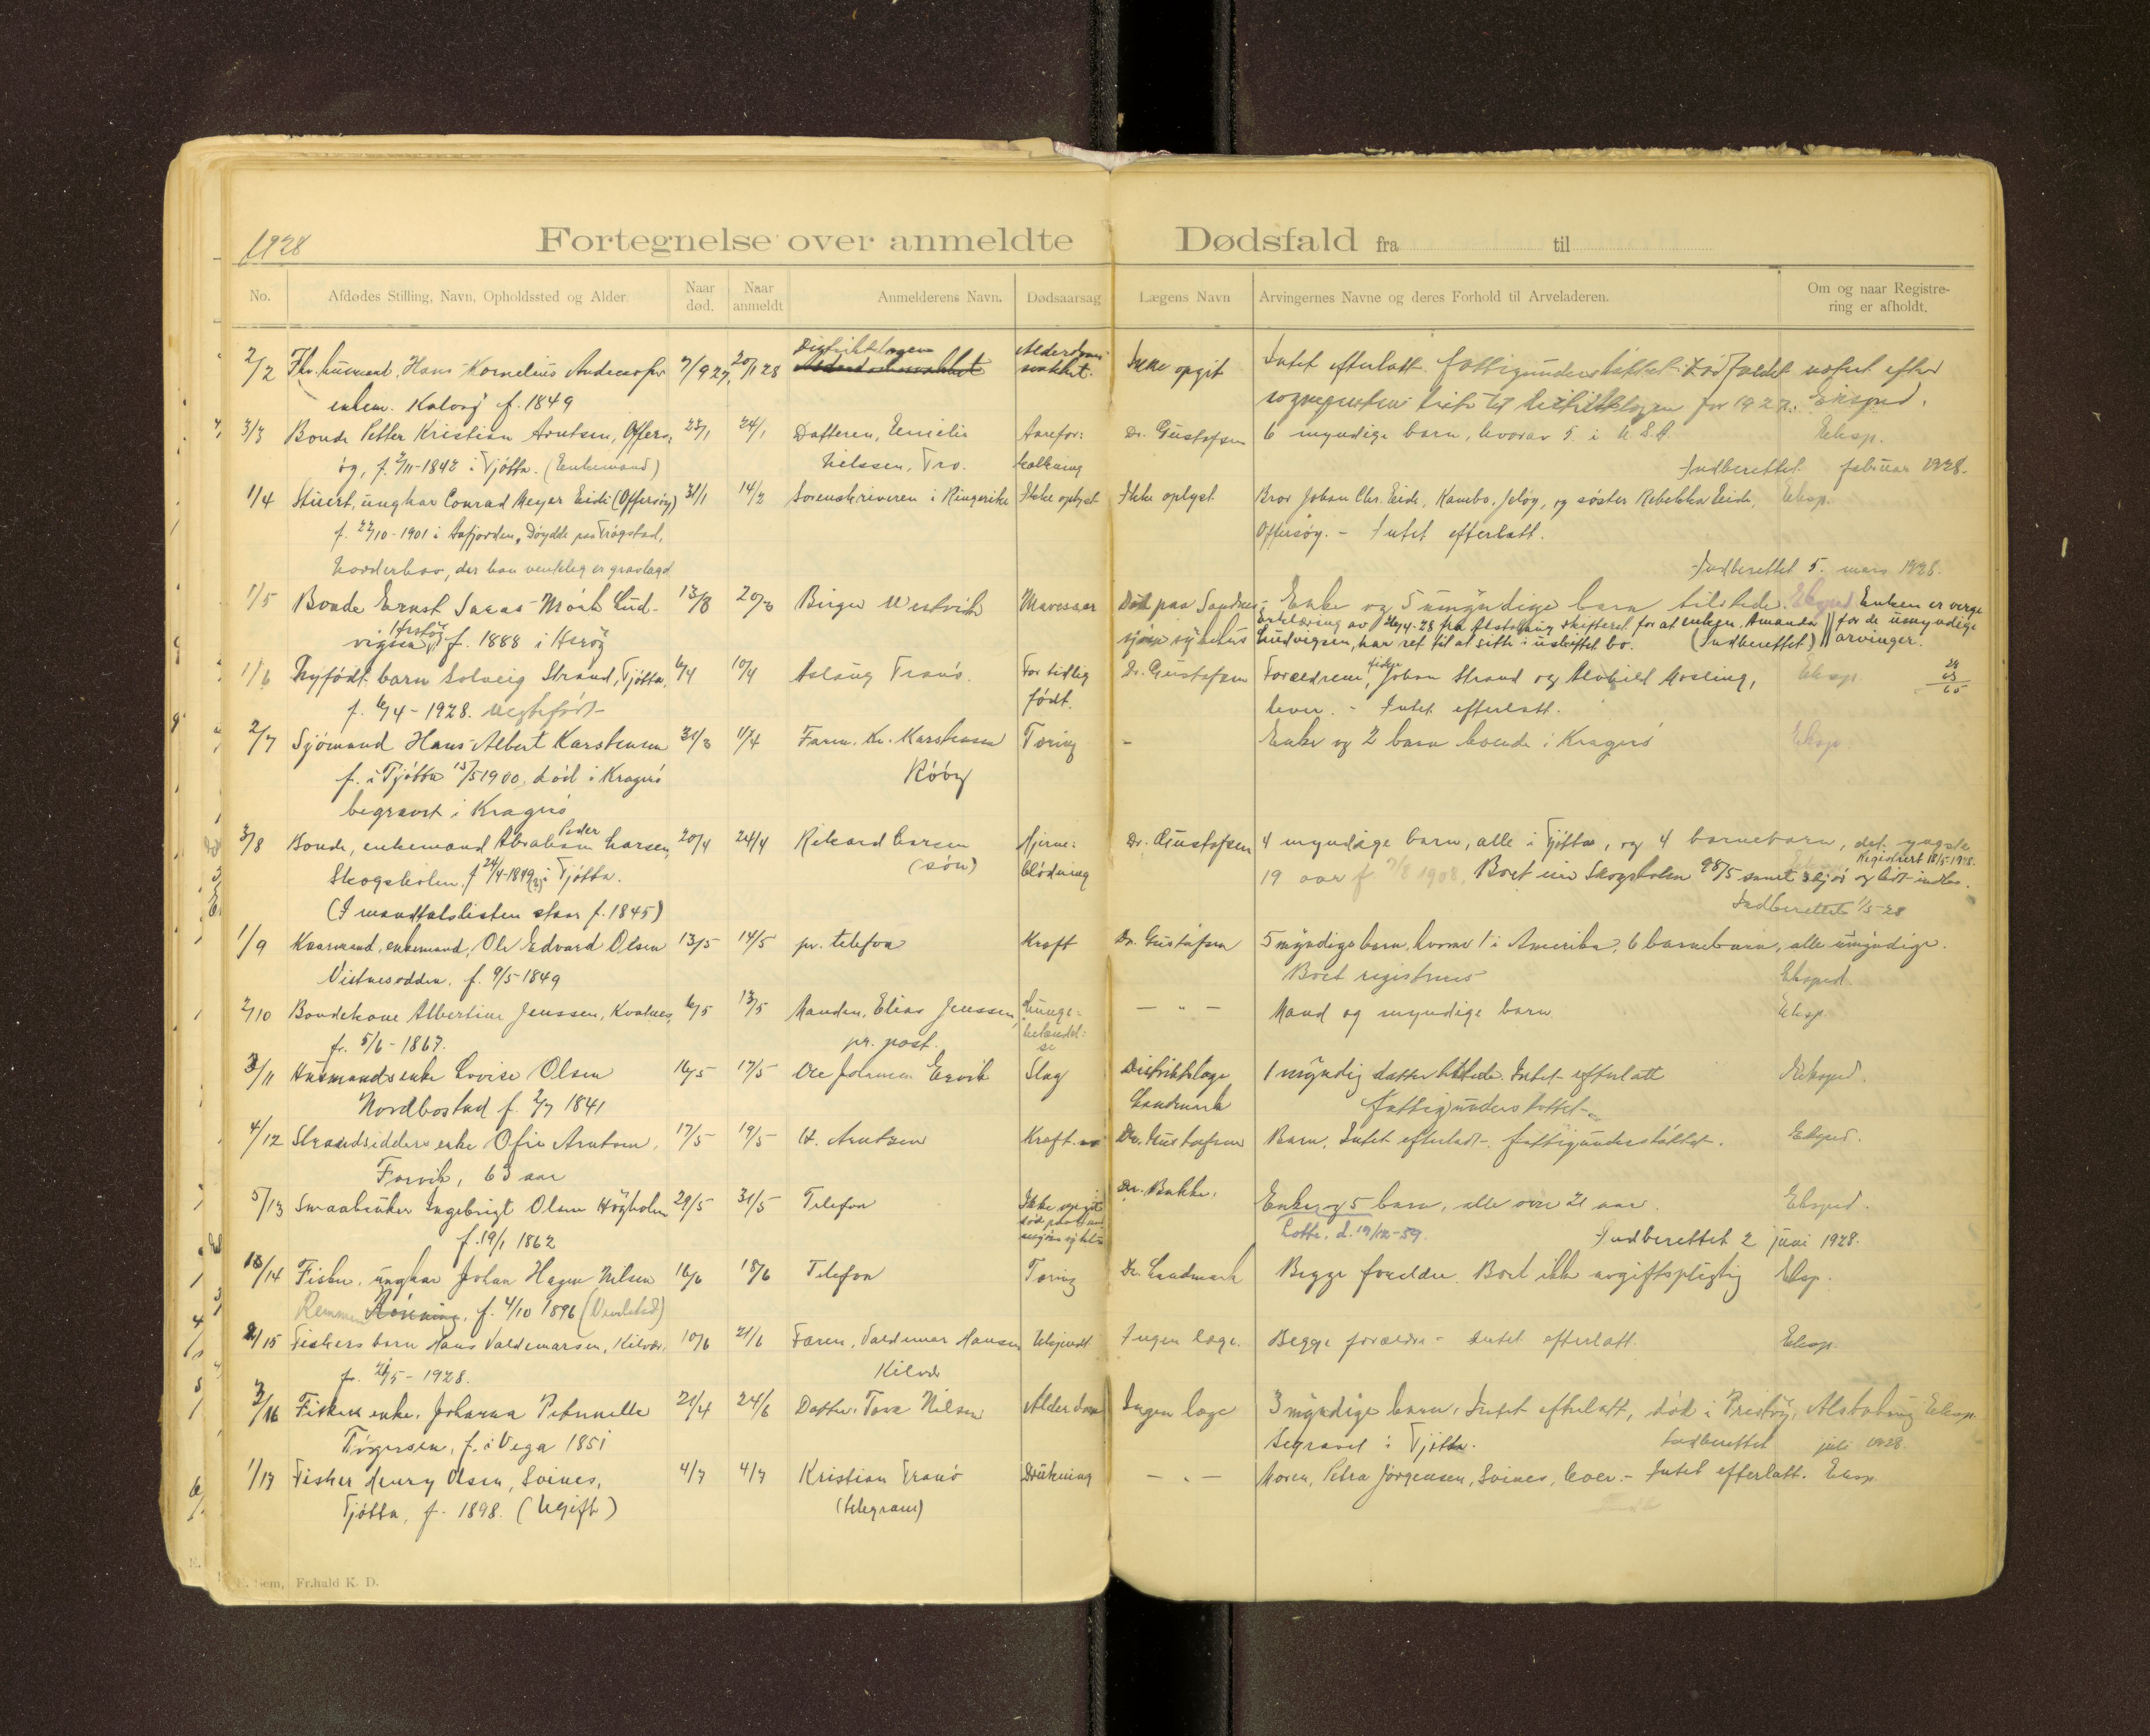 1928
Fortegnelse over anmeldte Dødsfald fra til
No. Afdødes Stilling, Navn, Opholdssted og Alder. Naar død. Naar anmeldt Anmelderens Navn. Dødsaarsag Lægens Navn Arvingernes Navne og deres Forhold til Arveladeren. Om og naar Registrering er afholdt.
2/2 Fhv. husmand, Hans Kornelius Andreassen 7/9 27, 20/1 28 Distriktslægen Alderdomssvakhet. Ikke opgit Intet efterlatt. Fattigunderstøttet. Dødsfaldet notert efter
enkem. f. 1849 sognepresten til distriktslægen for 1927. Eksped.
3/3 Bonde Petter Kristian Arntsen, Offers- 23/1 24/1 Datteren, Emelie Aarefor- Dr. Gustafsen 6 myndige barn, hvorav 5 i U.S.A. Eksp.
øy, f. 2/11-1842 i Tjøtta. (Enkemand) Nilssen, Tro. kalkning Indberettet februar 1928.
1/4 Stuert, ungkar Conrad Meyer Eide (Offersøy) 31/1 14/2 Sorenskriveren i Ringerike Ikke oplyst Ikke oplyst Bror Johan Chr. Eide, Kambo, Jeløy, og søster Rebekka Eide, Eksp.
f. 22/10-1901 i Aafjorden. Døydde paa Trøgstad, Offersøy. - Intet efterlatt.
Norderhov, der han venteleg er gravlagd Indberettet 5. mars 1928.
1/5 Bonde Ernst Lucas Mörk Lud- 13/3 20/3 Birger Westvik Mavesaar Død paa Sandnes- Enke og 5 umyndige barn tilstede. Eksped. Enken er verge
vigsen, f. 1888 i Herøy sjøen sykehus Erklæring av 26/4-28 fra Alstahaug skifteret for at enken, Amanda for de umyndige
Ludvigsen, har ret til at sitte i uskiftet bo. (Indberettet) arvinger.
1/6 Nyfødt barn Solveig Strand, Tjøtta, 6/4 10/4 Aslaug Tranø. For tidlig Dr. Gustafsen Forældrene, Johan Strand og Alvhild Mosling, Eksp.
f. 6/4-1928. Uegtefødt født. lever. - Intet efterlatt.
2/7 Sjømand Hans Albert Karstensen 31/3 11/4 Faren. Kr. Karstensen Tæring - Enke og 2 barn boende i Kragerø Eksp.
f. i Tjøtta 15/5 1900, død i Kragerø Røøy
begravet i Kragerø
3/8 Bonde, enkemand Abraham Peder Larsen, 20/4 24/4 Rikard Larsen Hjerne- Dr. Gustafsen 4 myndige barn, alle i Tjøtta, og 4 barnebarn, det yngste
Skogsholm, f. 24/4-1849(?) i Tjøtta. (søn) blødning 19 aar f. 7/8 1908. Registrert 18/5-1928.
(I mandtalslisten staar f. 1845) Indberettet 1/5-28
1/9 Kaarmand, enkemand, Ole Edvard Olsen 13/5 14/5 pr. telefon Kræft Dr. Gustafsen 5 myndige barn, hvorav 1 i Amerika, 6 barnebarn, alle umyndige.
Vistnesodden, f. 9/5-1849 Boet registreres Eksped.
2/10 Bondekone Albertine Jenssen, Kvalnes, 6/5 13/5 Manden, Elias Jenssen, Lunge- — " — Mand og myndige barn Eksp.
f. 5/6-1867. pr. post. betændelse
3/11 Husmandsenke Lovise Olsen 16/5 17/5 Ole Johansen Ervik Slag Distriktslæge 1 myndig datter tilstede. Intet efterlatt Eksped.
Nordbostad f. 2/7 1841 Landmark fattigunderstøttet
4/12 Strandsidders enke Ofie Arntsen, 17/5 19/5 H. Arntzen Kræft Dr. Gustafsen Barn. Intet efterladt. fattigunderstøttet. Eksped.
Forvik, 63 aar
5/13 Smaabruker Ingebrigt Olsen Högholm 29/5 31/5 Telefon Ikke opgit Dr. Bakke. Enke og 5 barn, alle over 21 aar. Eksped.
f. 19/1 1862 Lotte, d. 19/12-59. Indberettet 2 juni 1928.
1/14 Fisker, ungkar Johan Hagen Nilsen 16/6 18/6 Telefon Tæring Dr. Landmark Begge forældre. Boet ikke avgiftspligtig Eksp.
Remmen, f. 4/10 1896
2/15 Fiskers barn Hans Valdemarsen, Kilvær, 10/6 21/6 Faren, Valdemar Hansen Ukjendt Ingen læge. Begge forældre - Intet efterlatt. Eksp.
f. 26/5-1928. Kilvær
3/16 Fiskers enke, Johanna Petrunelle 21/4 24/6 Datter, Tora Nilsen Alderdom Ingen læge 3 myndige barn, Intet efterlatt, død i Prestøy, Alstahaug Eksp.
Törgersen, f. i Vega 1851 begravet i Tjøtta. Indberettet juli 1928.
1/17 Fisker Henry Olsen, Svines, 4/7 4/7 Kristian Tranø Drukning — " — Moren, Petra Jörgensen, Svines, lever. - Intet efterlatt. Eksp.
Tjøtta, f. 1898. (Ugift) (telegram)
Sem, Fr.hald K. D.